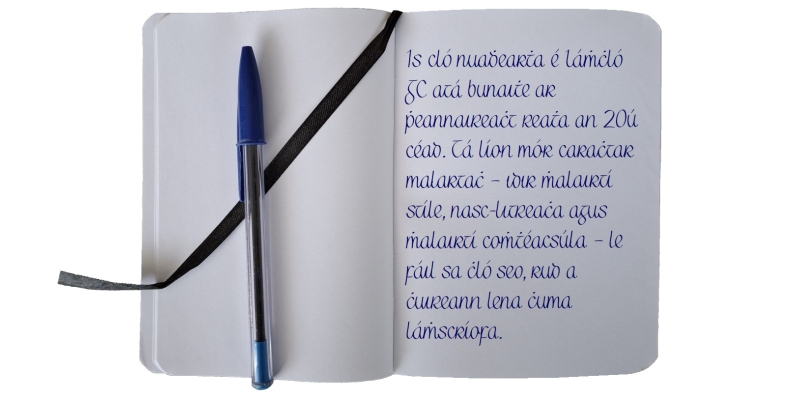 Is cló nuaḋearṫa é láṁċló
GC atá bunaiṫe ar
ṗeannaireaċt reaṫa an 20ú
céad. Tá líon mór caraċtar
malartaċ – idir ṁalairtí
stíle, nasc-litreaċa agus
ṁalairtí coṁṫéacsúla – le
fáil sa ċló seo, rud a
ċuireann lena ċuma
láṁscríofa.